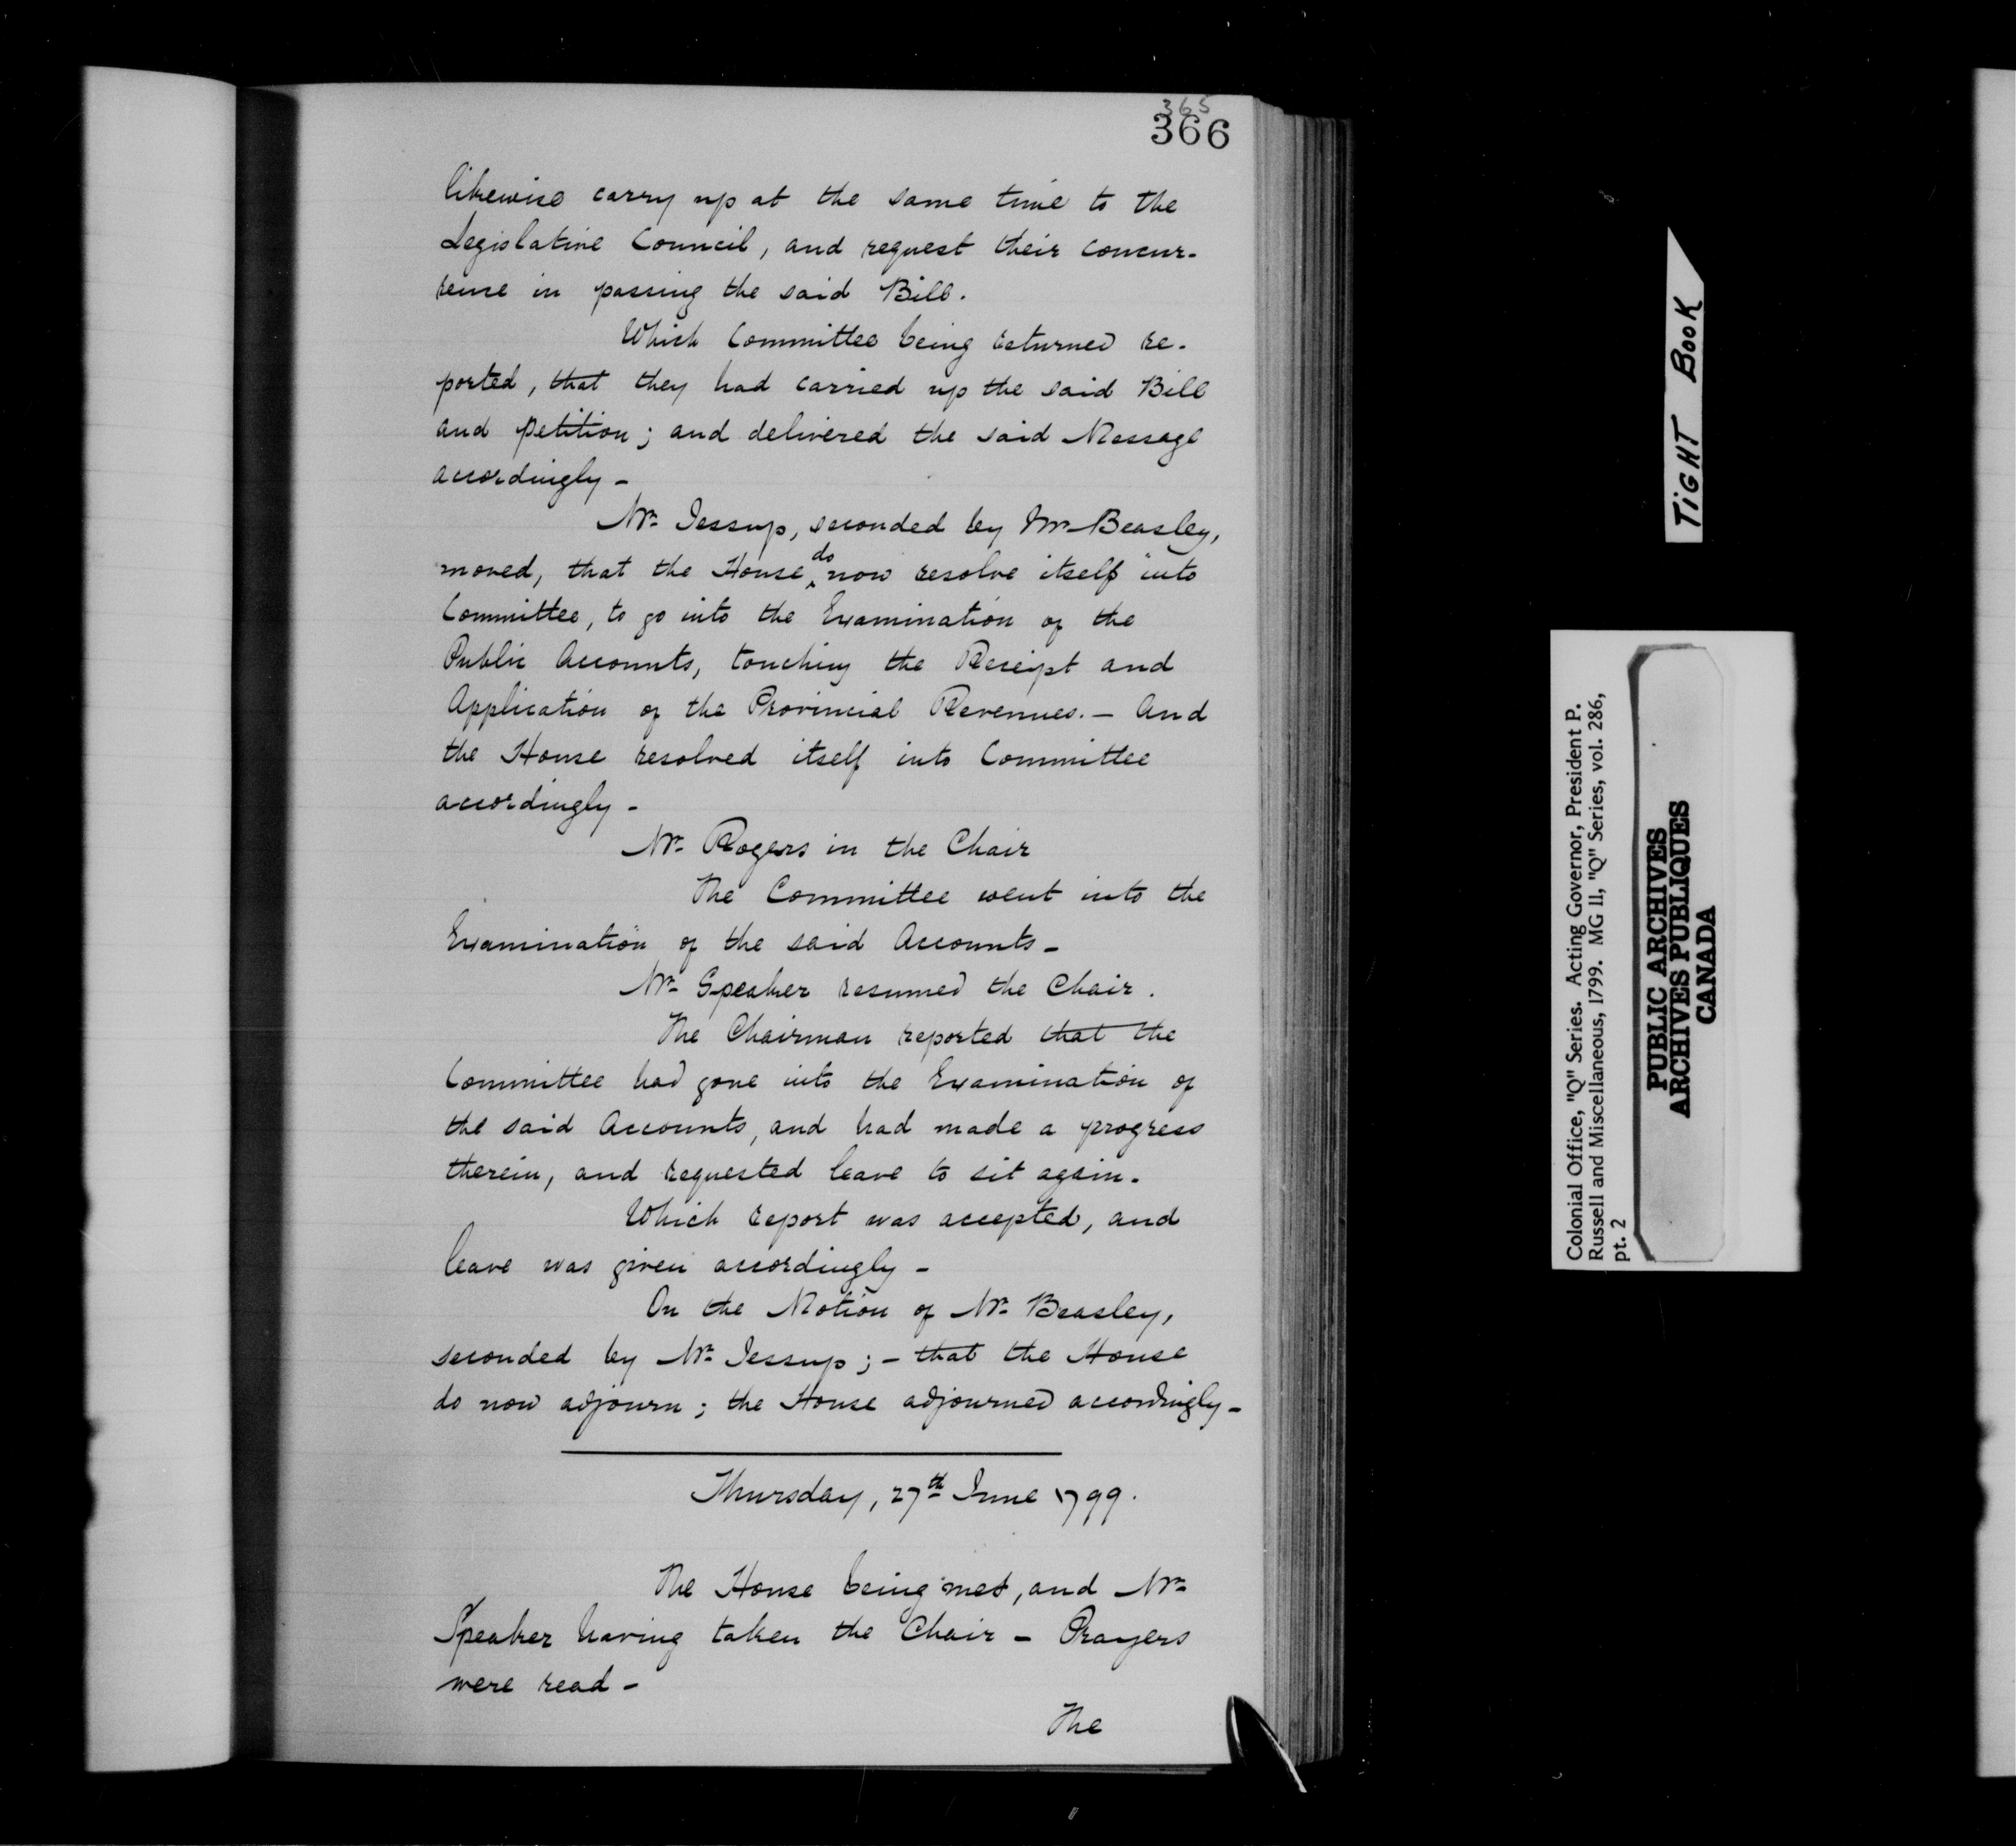 365
366
likewise carry up at the same time to the
Legislative Council, and request their concur-
rence in passing the said Bill.
Which Committee being returned re-
ported, that they had carried up the said Bill
and petition; and delivered the said Message
accordingly -
Mr. Jessup, seconded by Mr. Beasley,
moved, that the House do now resolve itself into
Committee, to go into the Examination of the
Public Accounts, touching the Receipt and
Application of the Provincial Revenues. - And
the House resolved itself into Committee
accordingly -
Mr. Rogers in the Chair
The Committee went into the
Examination of the said Accounts -
Mr. Speaker resumed the Chair.
The Chairman reported that the
Committee had gone into the Examination of
the said Accounts, and had made a progress
therein, and requested leave to sit again.
Which report was accepted, and
leave was given accordingly -
On the Motion of Mr. Beasley,
seconded by Mr. Jessup; - that the House
do now adjourn; the House adjourned accordingly -
Thursday, 27th June 1799.
The House being met, and Mr.
Speaker having taken the Chair - Prayers
were read -
The
TIGHT BOOK
Colonial Office, "Q" Series. Acting Governor, President P.
Russell and Miscellaneous, 1799. MG 11, "Q" Series, vol. 286,
pt. 2
PUBLIC ARCHIVES
ARCHIVES PUBLIQUES
CANADA